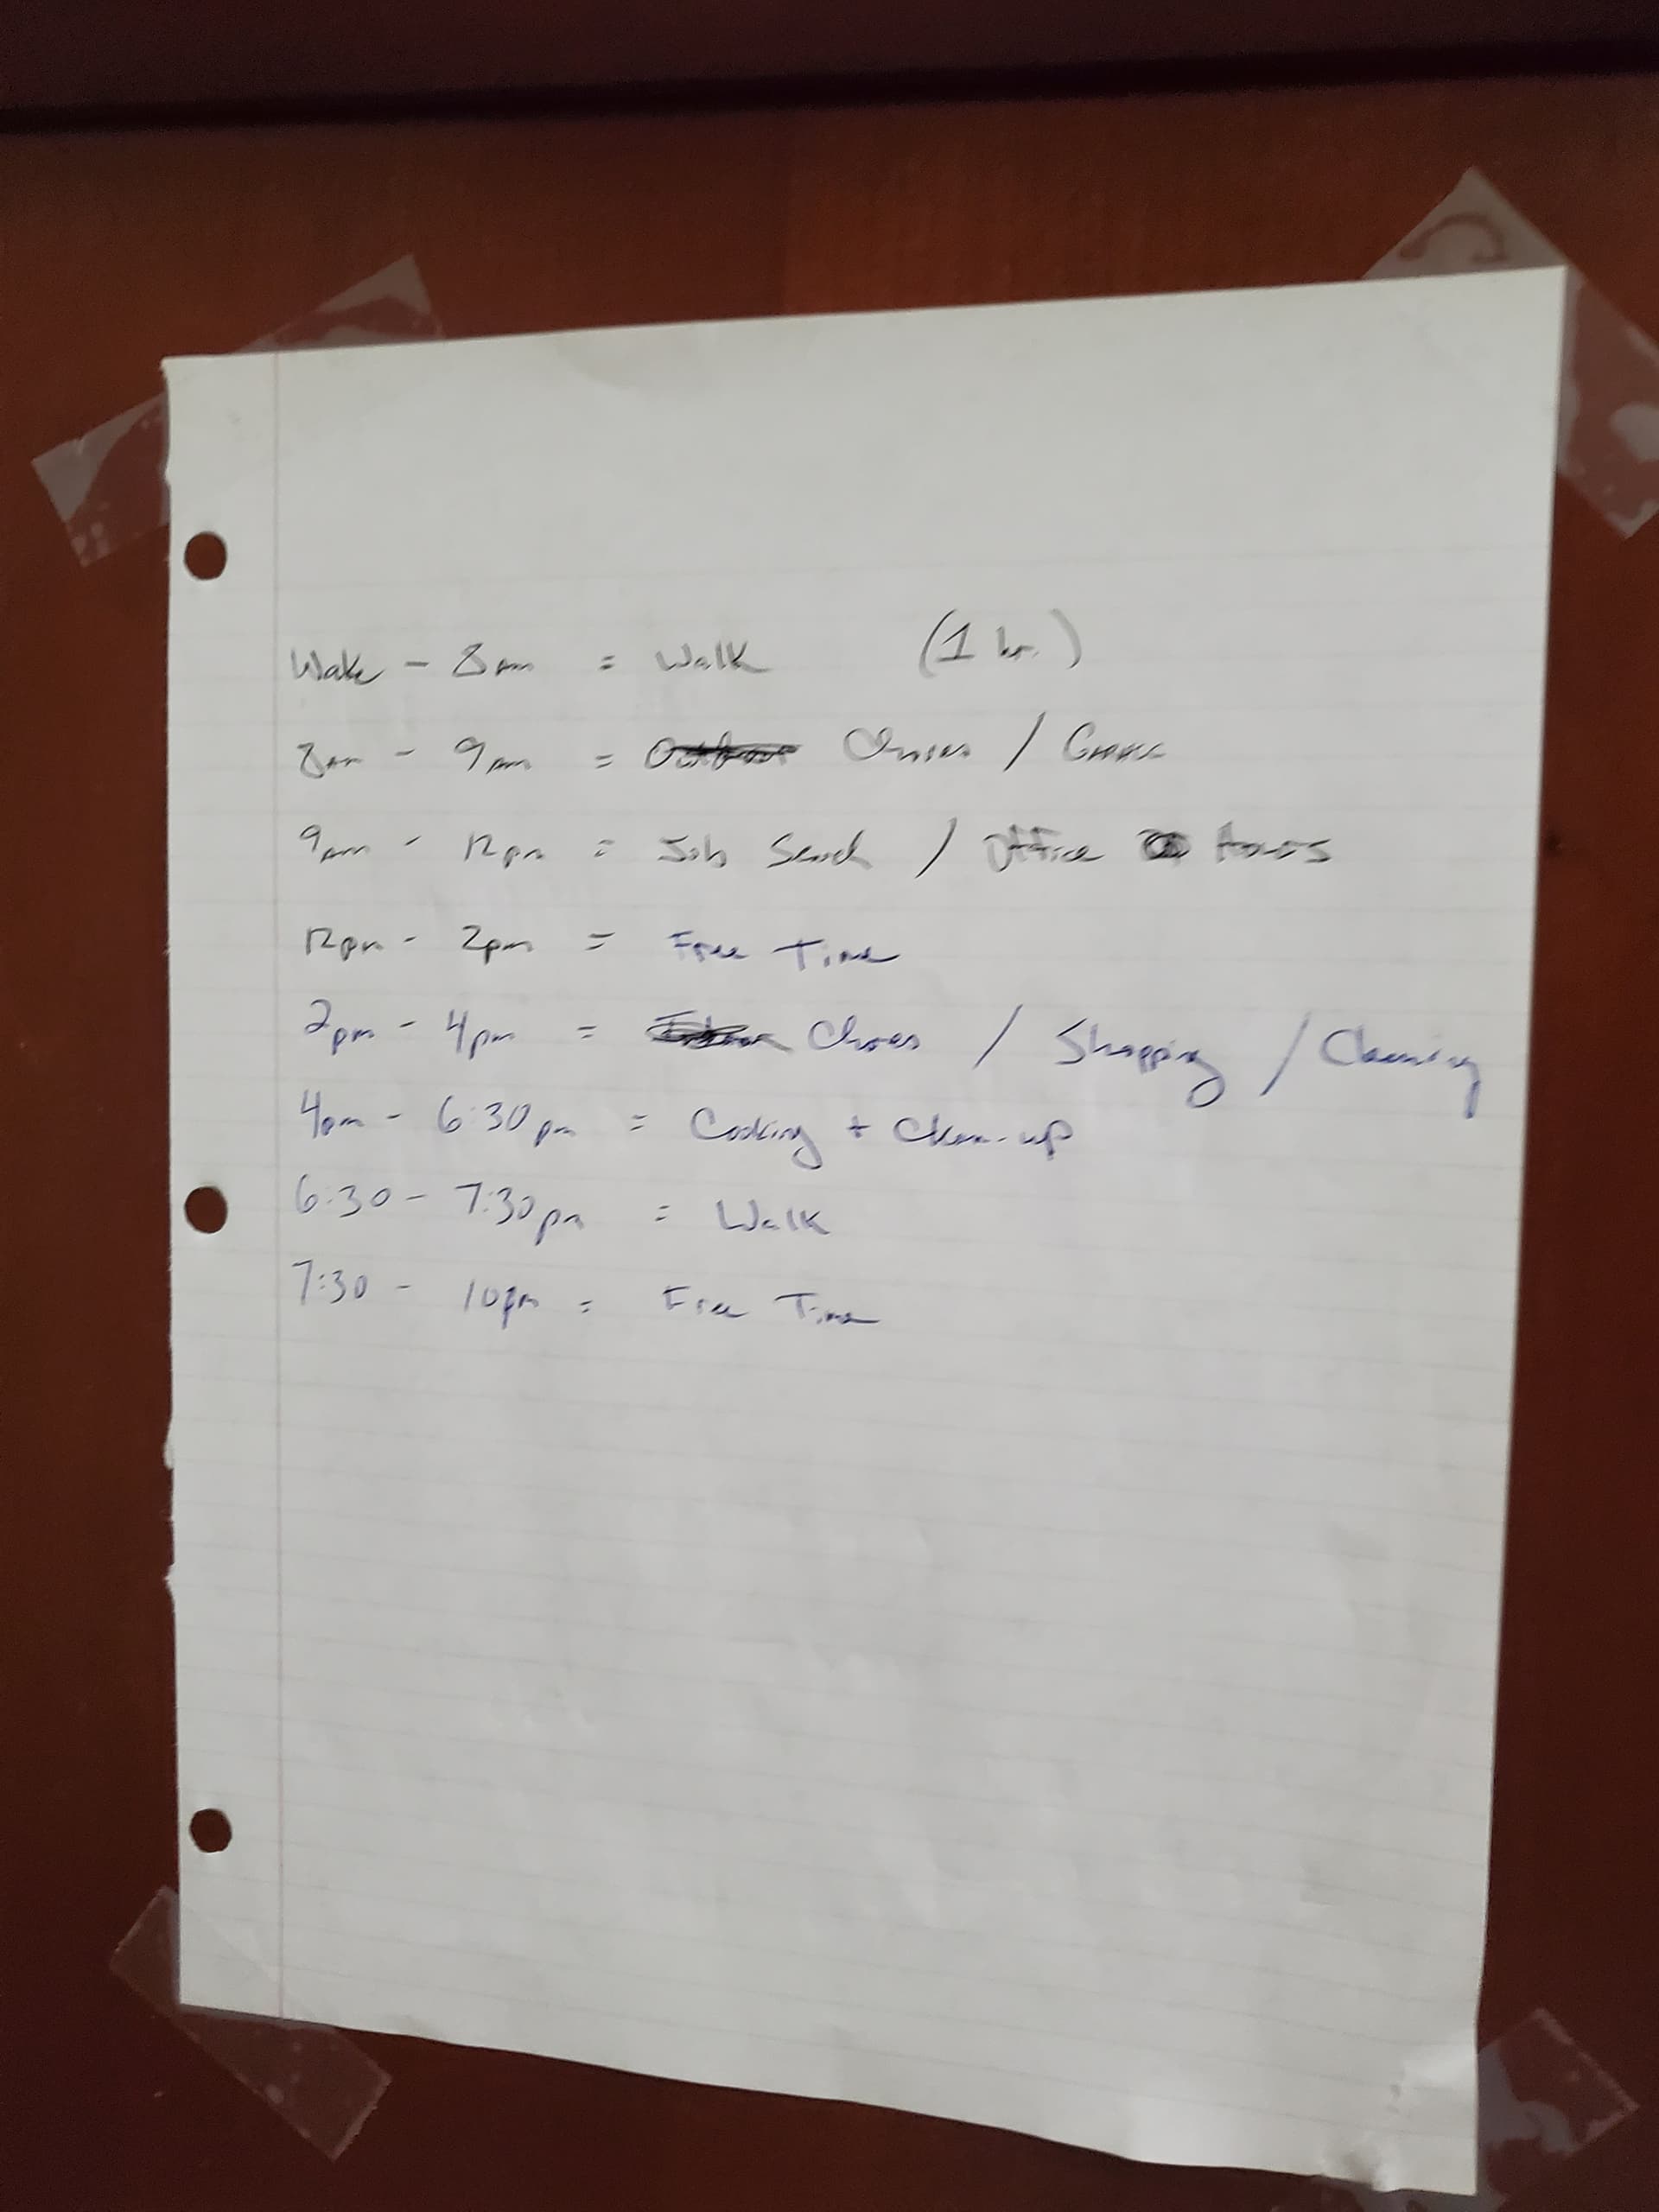 Wake - 8am = Walk (1 hr.)
8am - 9am = Chores /
9am - 12pm = Job Search / Office Hours
12pm - 2pm = Free Time
2pm - 4pm = Chores / Shopping / Cleaning
4pm - 6:30pm = Cooking + Clean-up
6:30 - 7:30pm = Walk
7:30 - 10pm = Free Time